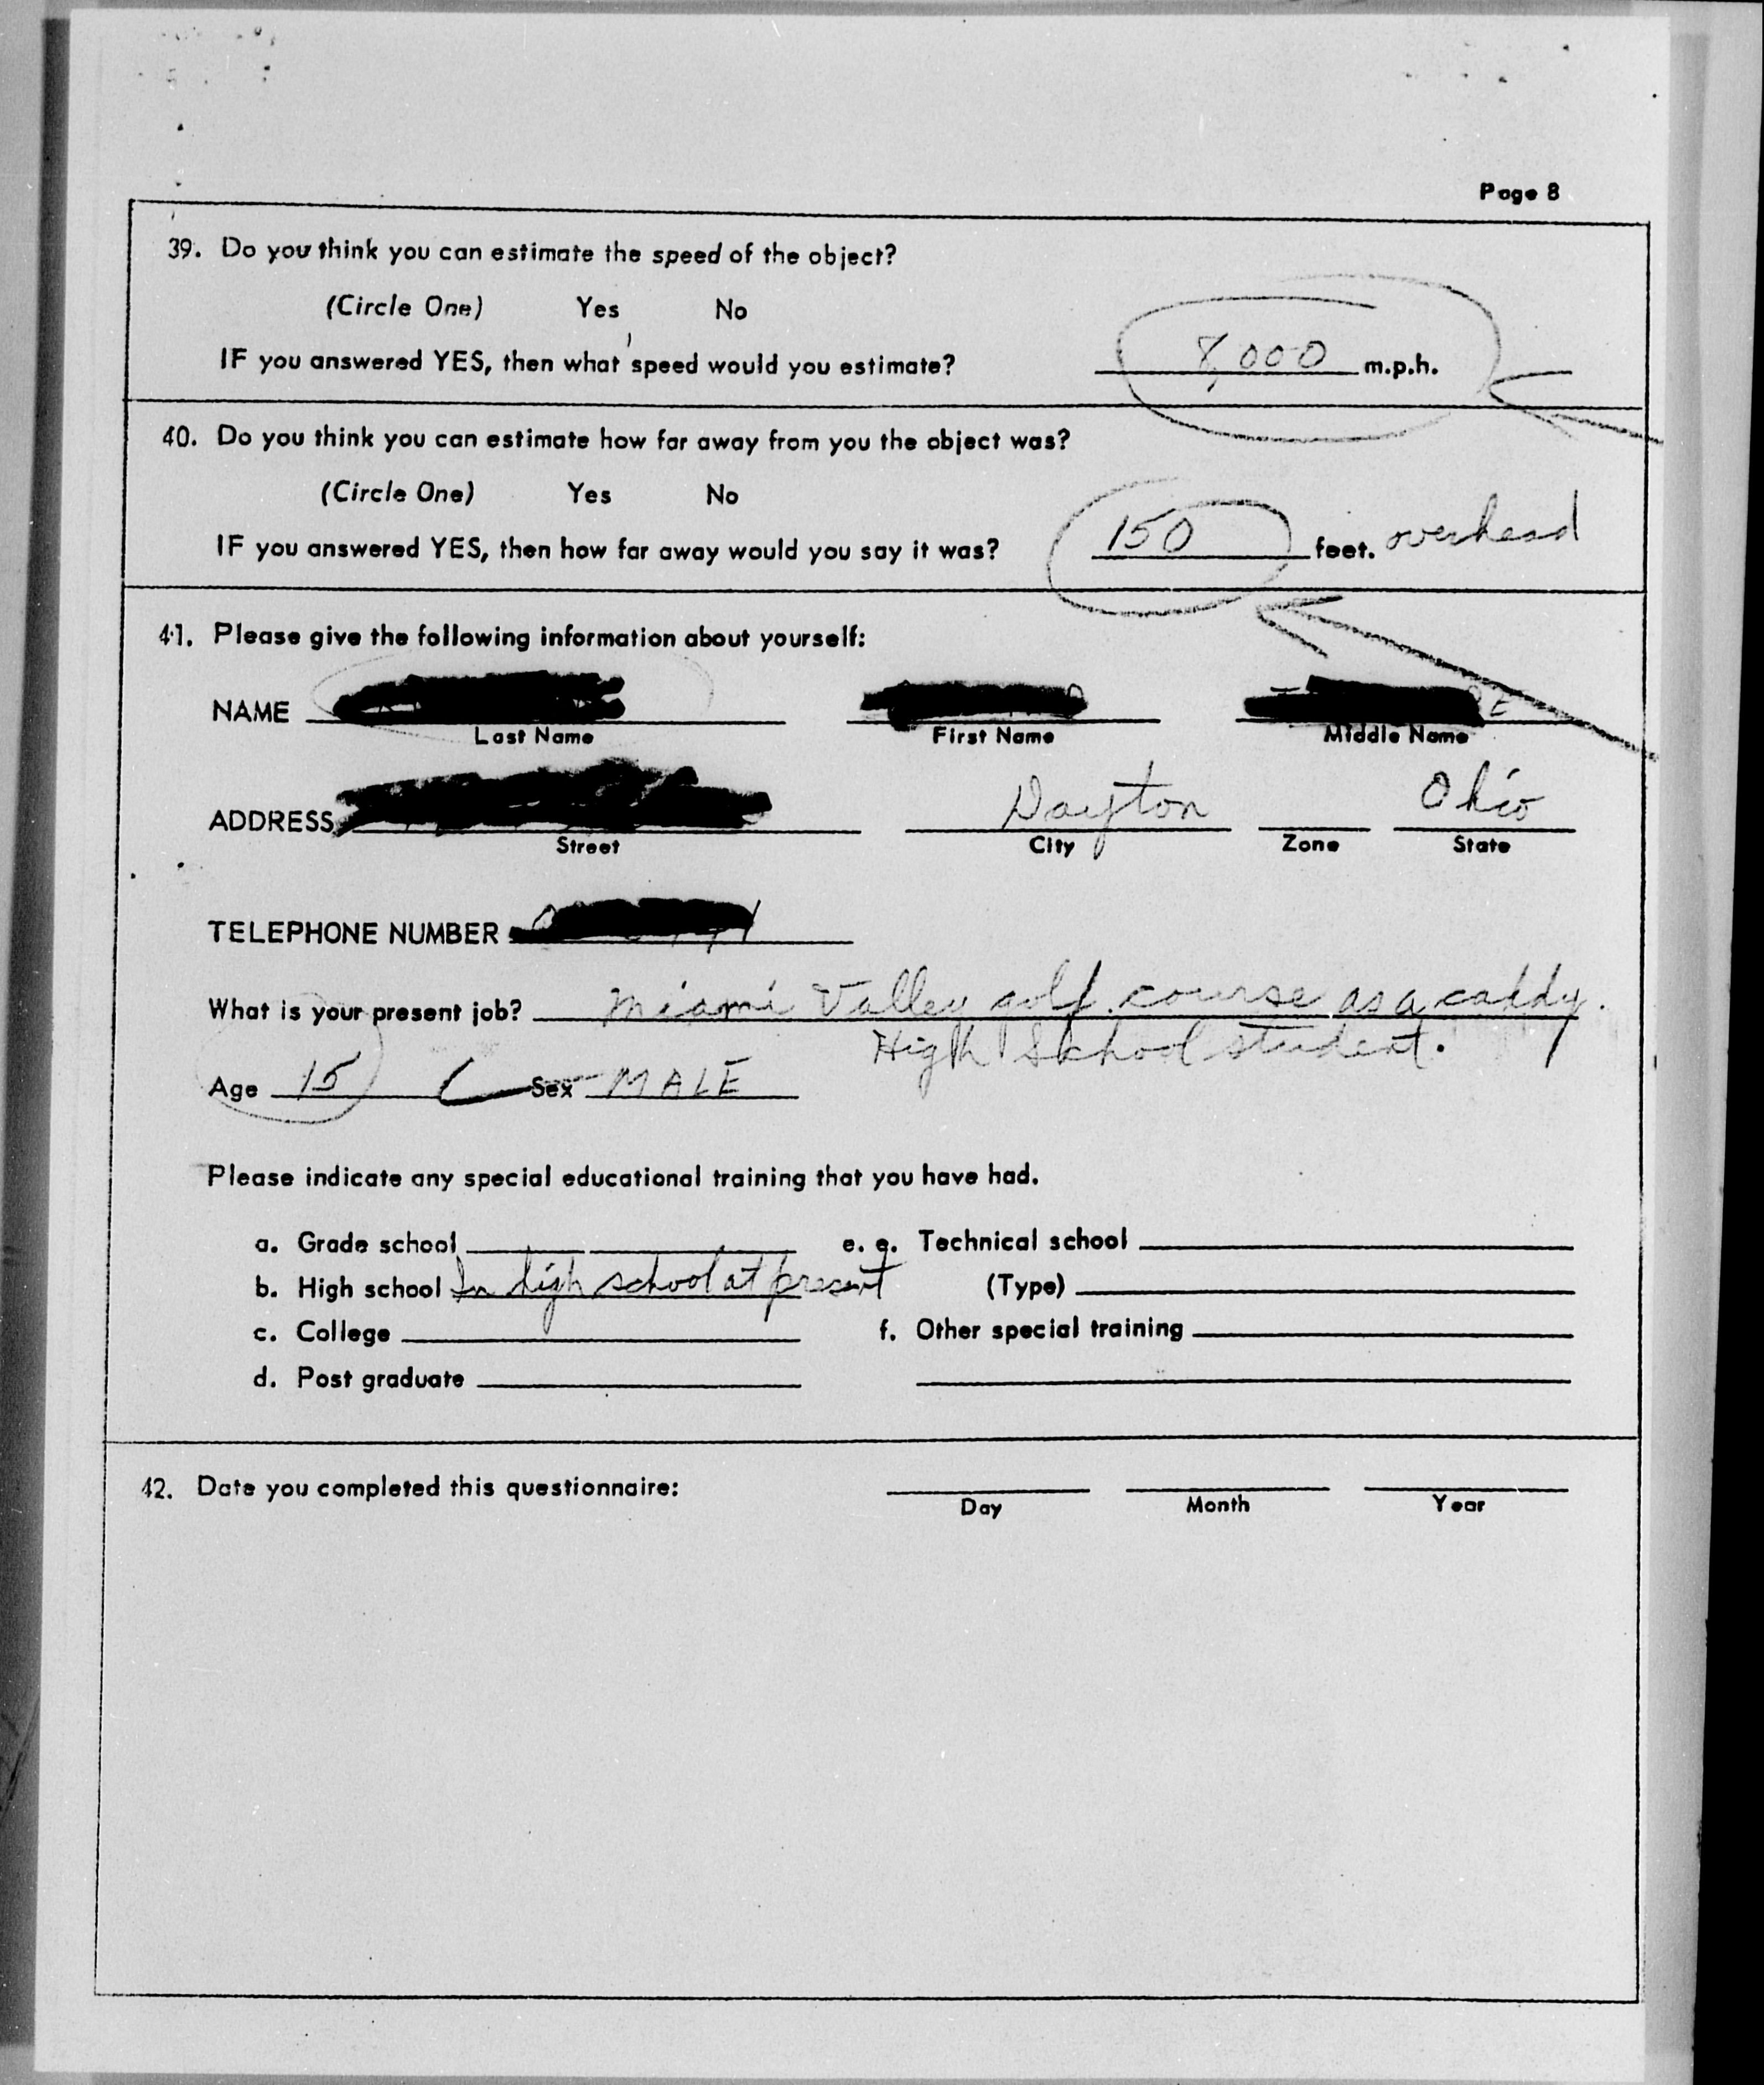 Page 8
39. Do you think you can estimate the speed of the object?
(Circle One) Yes No
IF you answered YES, then what speed would you estimate? 8,000 m.p.h.
40. Do you think you can estimate how far away from you the object was?
(Circle One) Yes No
IF you answered YES, then how far away would you say it was? 150 feet. overhead
41. Please give the following information about yourself:
NAME
Last Name First Name Middle Name
ADDRESS Dayton Ohio
Street City Zone State
TELEPHONE NUMBER
What is your present job? Miami Valley golf course as a caddy.
High School student.
Age 15 Sex MALE
Please indicate any special educational training that you have had.
a. Grade school e. e. Technical school
b. High school In high school at present (Type)
c. College f. Other special training
d. Post graduate
42. Date you completed this questionnaire:
Day Month Year